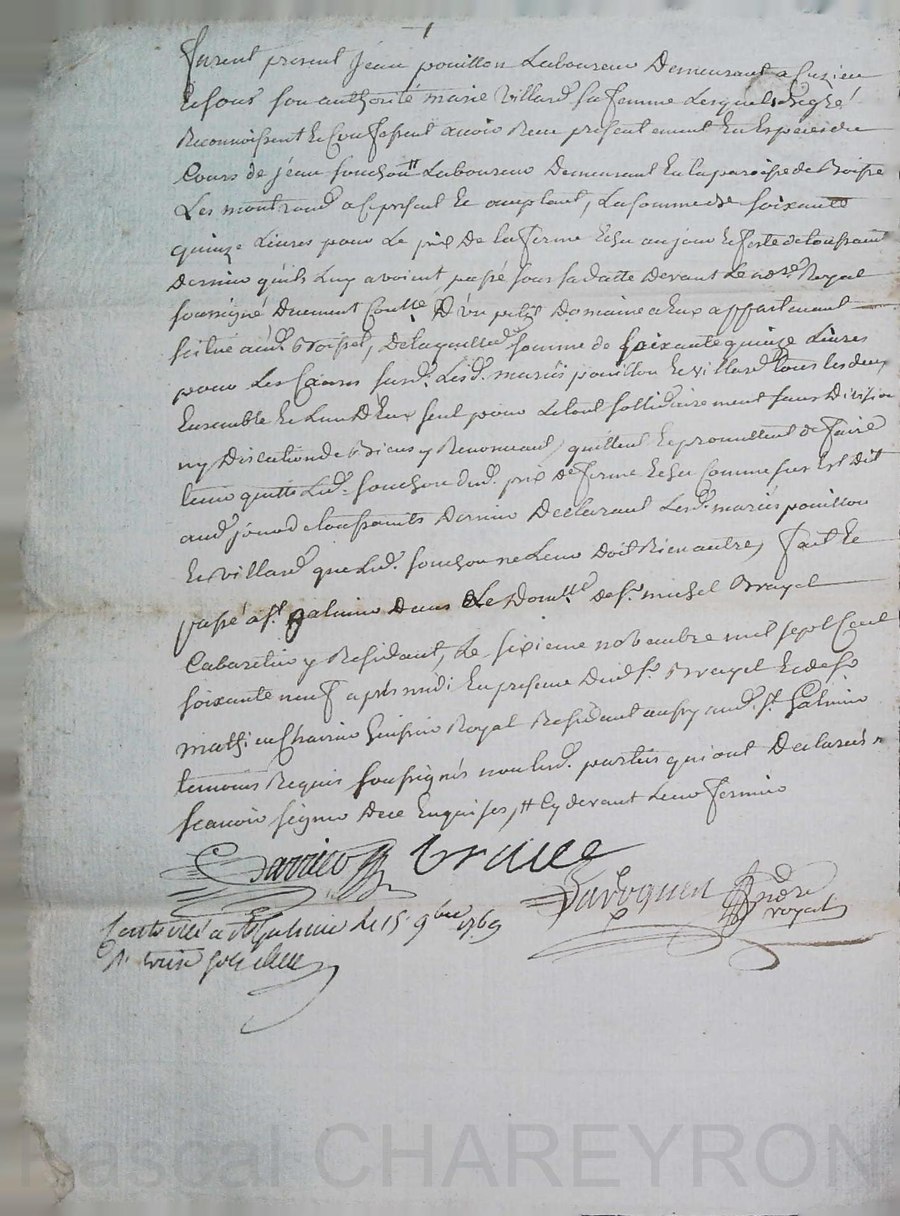 furent present jean pouillon Laboureur Demeurant a Cuzieu
Et sous son authorité marie villard sa femme Lesquels de gré
Reconnoissent Et Confessent avoir Receu presentement En Especes du
Cours de jean souchon Laboureur Demeurant En la paroisse de Boisset
Les montrond a Ce present Et acceptant, La somme de soixante
quinze Livres pour Le prix De la ferme Echu au jour Et feste de toussaint
Dernier qu'ils Luy avoient passé sous sa datte Devant Le nore Royal
soussigné Duement Conttée D'un petit Domaine a Eux appartenant
scitué aud. Boisset, De laquelle somme de soixante quinze Livres
pour Les Causes susd. Lesd. mariés pouillon Et villard tous les deux
Ensemble Et L'un D'Eux seul pour Le tout sollidairement sans Division
ny Discution de Biens y Renonceant, quittent Et promettent De faire
tenir quitte Led. souchon dud. prix De ferme Echu Comme sus Est Dit
aud. jour de toussaints Dernier Declarant Lesd. mariés pouillon
Et villard que Led. souchon ne Leur Doit Rien autre, fait Et
passé a St. galmier Dans Le Domlle de Sr. michel Brayet
Cabaretier y Residant, Le sixieme novembre mil sept Cent
soixante neuf après midi En presence Dud. Sr. Brayet Et de Sr.
mathieu Charrier huissier Royal Residant aussy aud. St. Galmier
temoins Requis soussignés non lesd. parties qui ont Declarés ne
scavoir signer De ce Enquises, Cy devant Leur fermier
Brayet
nore
royal
Controllé a St Galmier le 15 9bre 1769
Pascal CHAREYRON